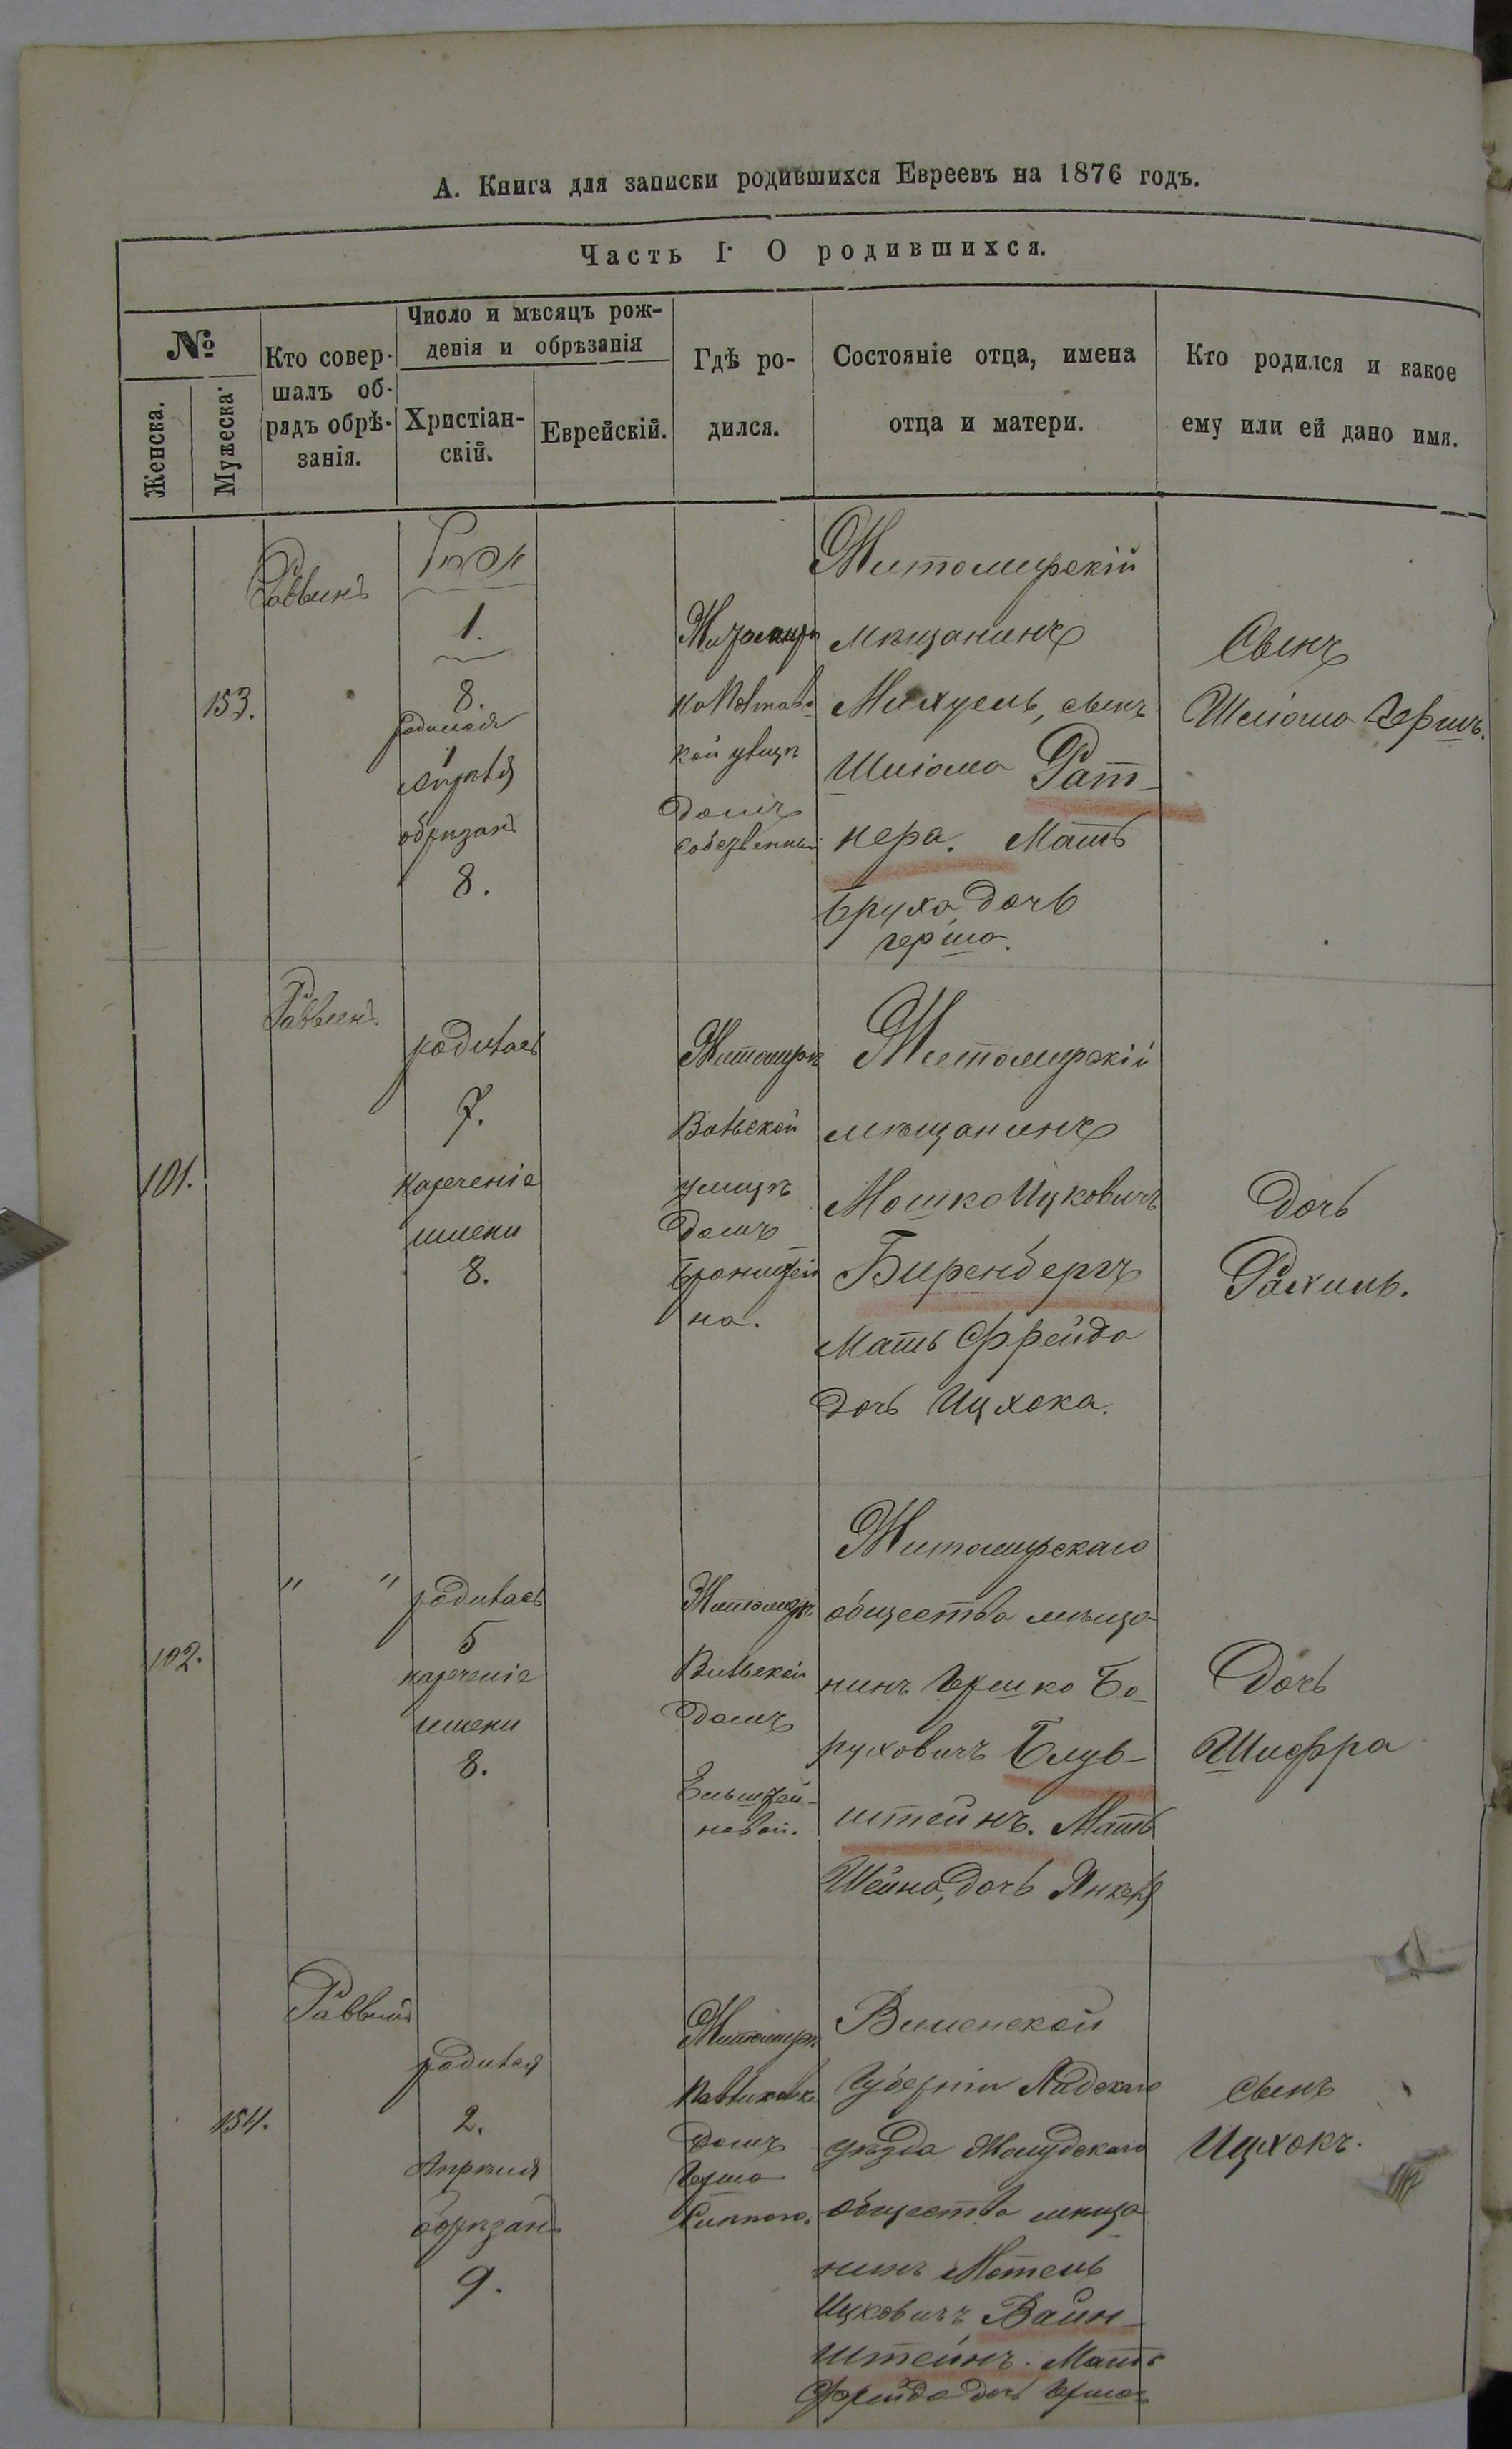 А. Книга для записки родившихся Евреевъ на 1876 годъ.
Часть I. О родившихся.
№
Женска.
Мужеска.
Кто совер-
шалъ об-
рядъ обрѣ-
занія.
Число и мѣсяцъ рож-
денія и обрѣзанія
Христіан-
скій.
Еврейскій.
Гдѣ ро-
дился.
Состояніе отца, имена
отца и матери.
Кто родился и какое
ему или ей дано имя.
153.
Раввинъ
1.
8.
родился
Апрѣля
обрѣзанъ
8.
Житомирѣ
кой улицѣ
домъ
собственный
Житомирскій
мѣщанинъ
Михуель, сынъ
Шліома Рат-
нера. Мать
Бруха дочь
Герша.
Сынъ
Шліома Гершъ.
101.
Раввинъ
родилась
7.
нареченіе
имени
8.
Житомирѣ
Вильской
улицѣ
домъ
Бронштей
на.
Житомирскій
мѣщанинъ
Мошко Ицковичъ
Биренбергъ
Мать Фрейда
дочь Ицхока.
Дочь
Рахиль.
102.
" "
родилась
5
нареченіе
имени
8.
Житомирѣ
Вильской
домъ
новой.
Житомирскаго
общества мѣща-
нинъ Гершко Бо-
руховичъ Блув-
штейнъ. Мать
Шейна, дочь Янкеля
Дочь
Шифра
154.
Раввинъ
родился
2.
Апрѣля
обрѣзанъ
9.
Житомирѣ
домъ
Герша
Виленской
Губерніи Лидскаго
уѣзда Жолудскаго
общества мѣща
нинъ Мотель
Ицковичъ Вайн-
штейнъ. Мать
Фрейда дочь Герша
сынъ
Ицхокъ.